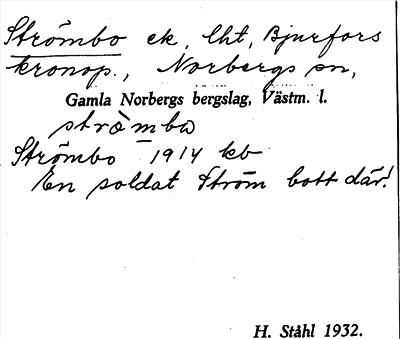 Strömbo ek, lht, Bjurfors
kronop., Norbergs sn,
Gamla Norbergs bergslag, Västm. l.
strömbo
Strömbo 1914 kb
En soldat Ström bott där!
H. Ståhl 1932.